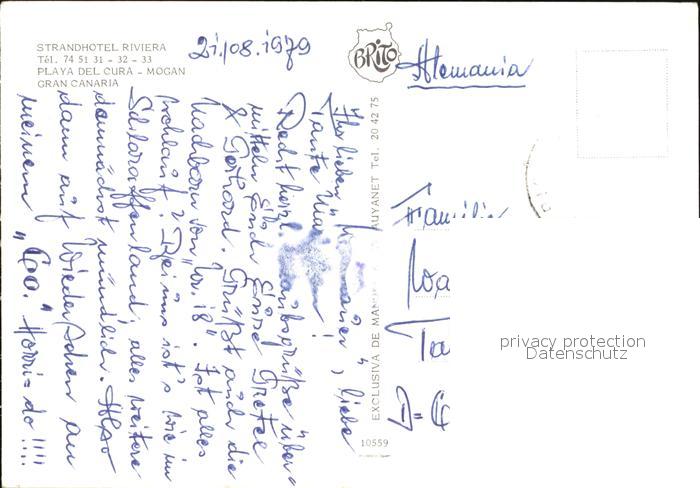 STRANDHOTEL RIVIERA
Tél. 74 51 31 - 32 - 33
PLAYA DEL CURA - MOGAN
GRAN CANARIA
21.08.1979
BRITO
Alemania
Ihr lieben, liebe
Tante !
Recht herzl. übermitteln
Euch Eure Gretel
& Gerhard. Grüßt auch die
Nachbarn von Nr. 18. Ist alles
wohlauf? Bei uns ist's wie im
Schlaraffenland, alles weitere
demnächst mündlich. Also
dann auf Wiedersehen an
meinem "60." !!!!
EXCLUSIVA DE
Tel. 20 42 75
10559
Familie
privacy protection
Datenschutz